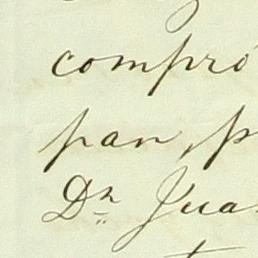 compró
pan, p
Dn Jua